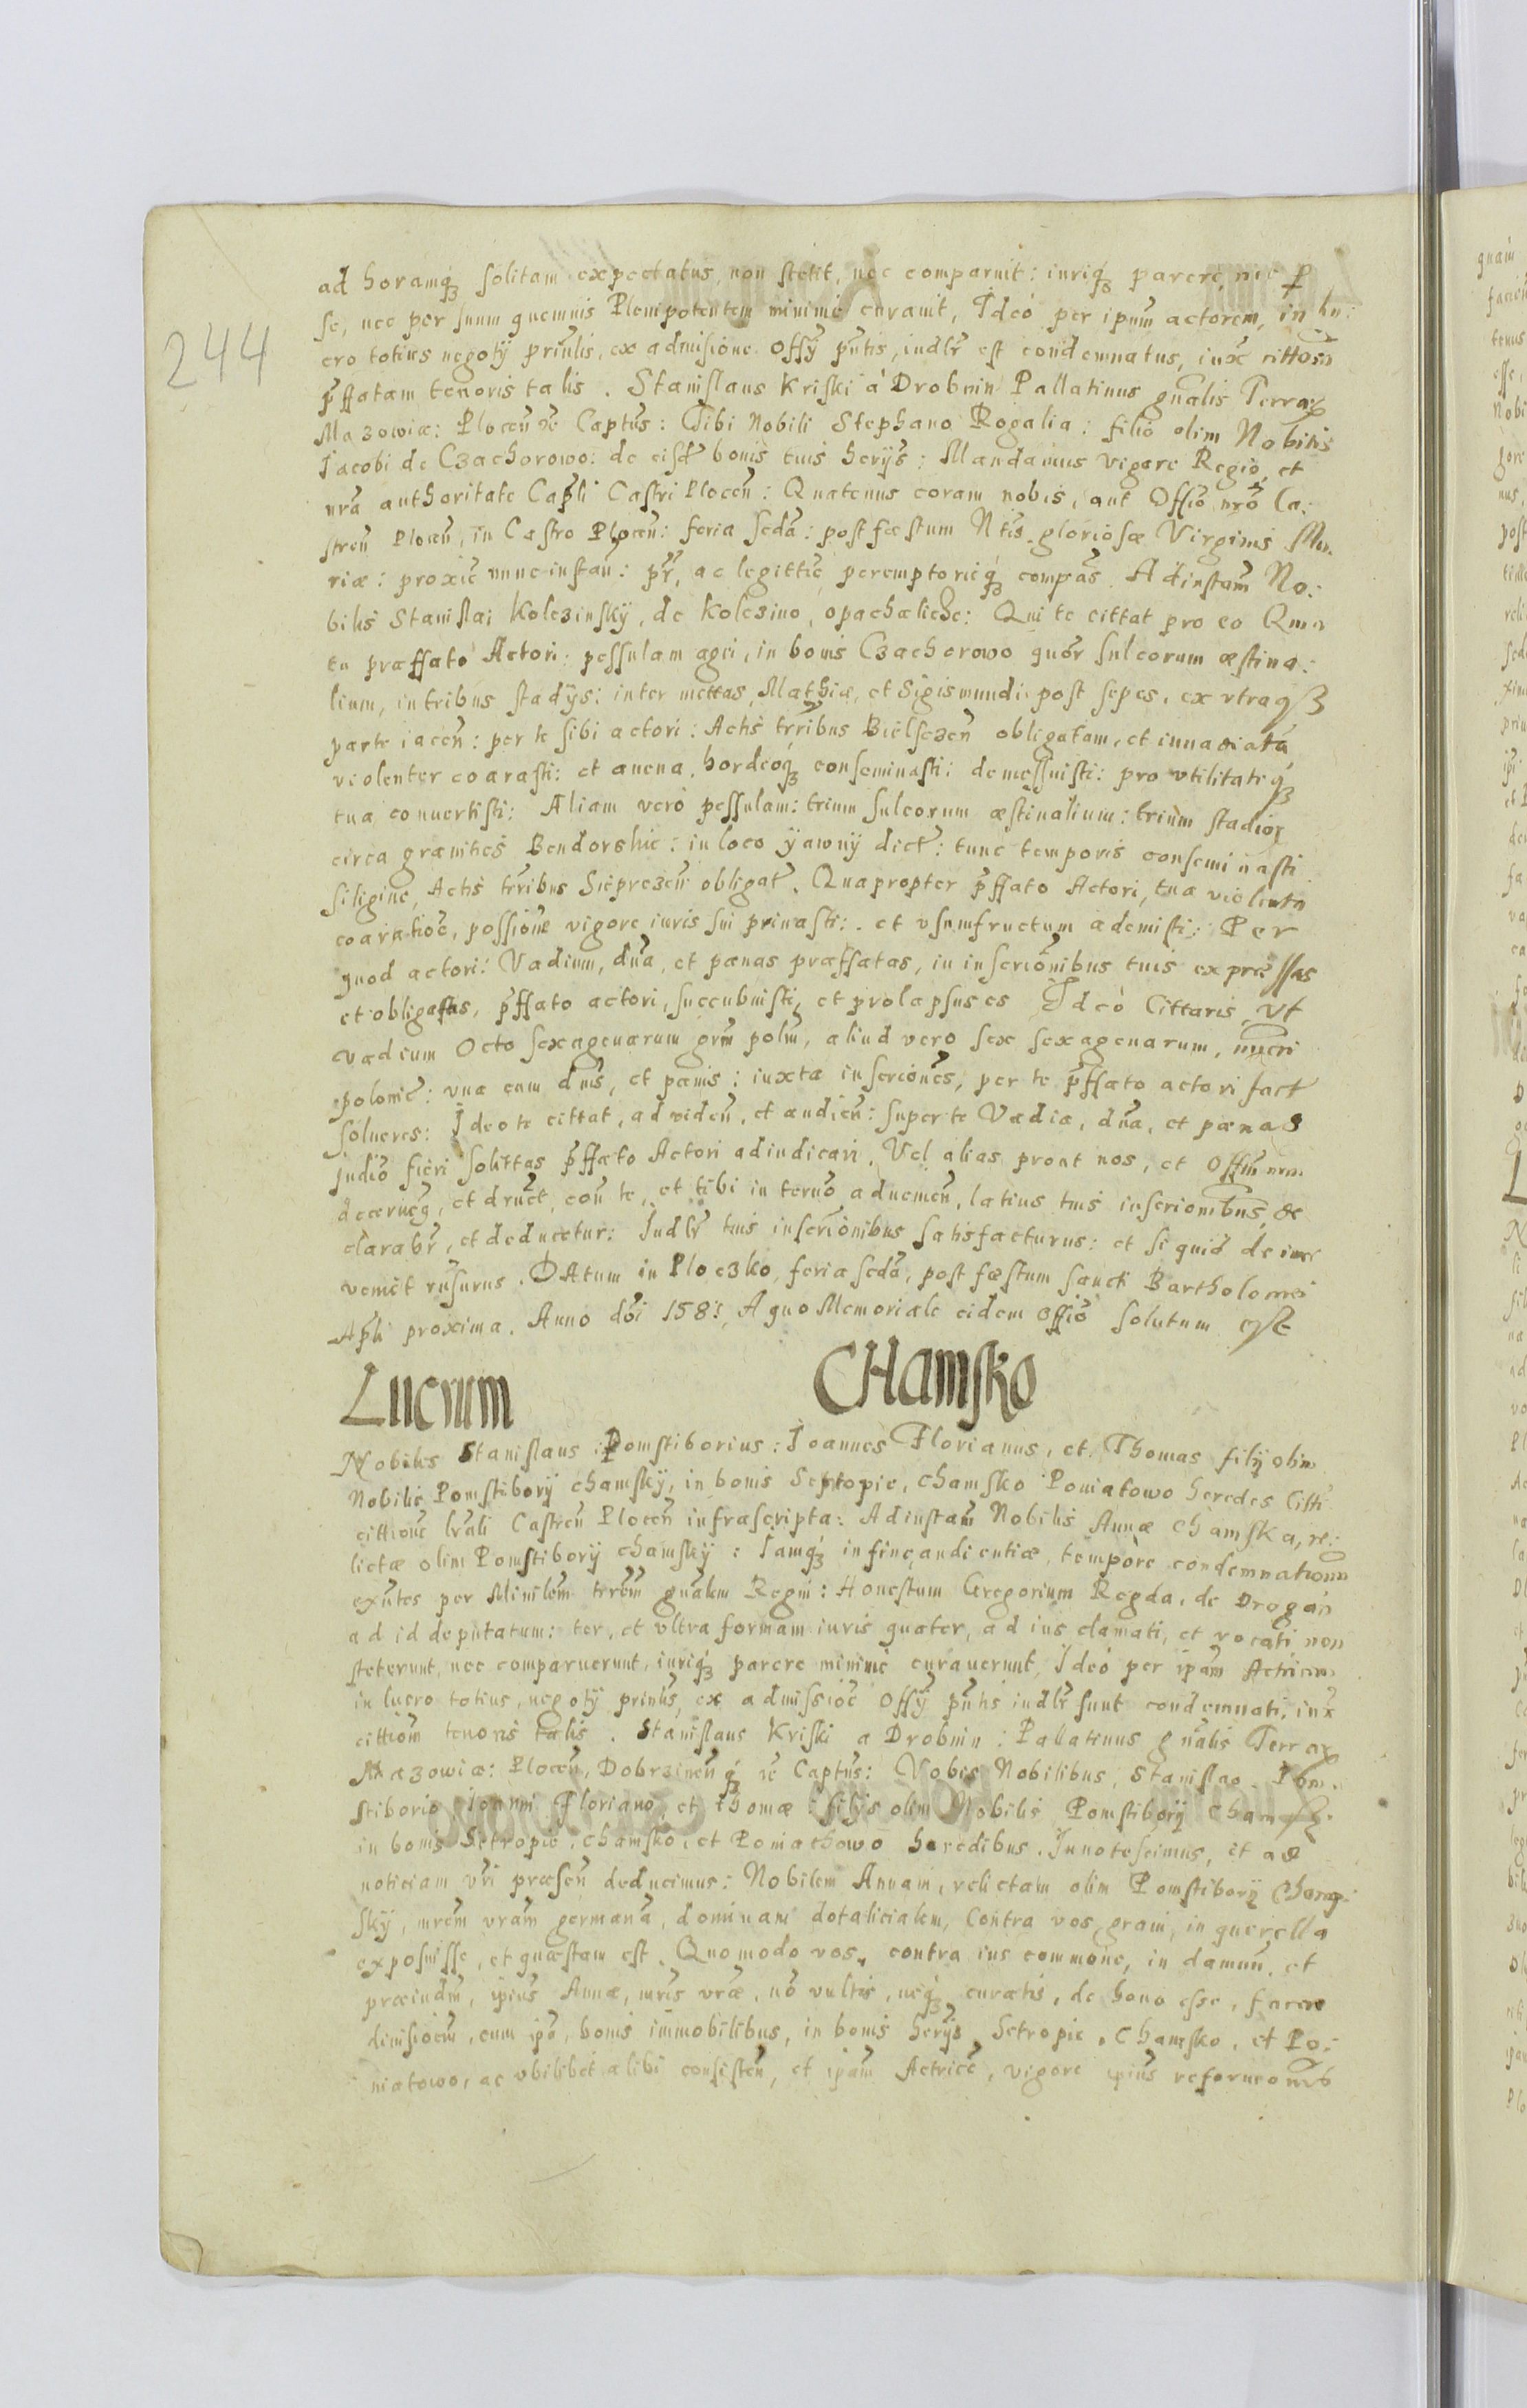 244
ad horamq́ꝫ solitam expectatus, non stetit, nec comparuit: iuriq́ꝫ parere, nec p̲
se, nec per suum quemuis Plenipotentem minimè curauit, Ideó per ipsum actorem, in lu:
cro totius negotÿ prinlis, ex admisione offÿ pñtis, iudlr̃ est condemnatus, iux̃ cittoẽm
p̃ffatam tenoris talis. Stanislaus Kriski à Drobnin Pallatinus gñalis Terrarꝫ
Mazowiæ: Plocen̄ ꝛc̄ Captũs: Tibi Nobili Stephano Rogalia: filio olim Nobilis
Jacobi de Czachorowo: de eisd̃ bonis tuis herÿs: Mandamus vigore Regio, et
nrã authoritate Capłi Castri Plocen̄: Quatenus coram nobis, aut Offiõ nrõ Ca:
stren̄ Plocen̄, in Castro Plocen̄: feria scdã: post fæstum Ntĩs gloriosæ Virginis Ma:
riæ: proxiẽ nunc instan̄: pr̃r, ac legittiẽ, peremptorieq́ꝫ compãs Adinstañ No:
bilis Stanislai Kolczinskÿ, de Kolczino, opachæliche: Qui te cittat pro eo Quia
tu præffato Actori: pessulam agri, in bonis Czachorowo quor̃ sulcorum æstiua:
lium, in tribus stadÿs: inter mettas, Mathiæ, et Sigismundi: post sepes, ex vtraqꝫ
parte iacen̄: per te sibi actori: Actis tr̃ribus Bielscen̄ obligatam, et innadiatã
violenter coarasti: et auena, hordeoq́ꝫ conseminasti: demessuisti: pro vtilitateq́ꝫ
tua conuertisti: Aliam verò pessulam: trium sulcorum æstiualium: trium stadiorꝫ
circa granities Bendorskie: in loco ÿawnÿ dict̃: tunc temporis conseminasti
siligine, Actis tr̃ribus Sieprczen̄ obligat̃. Quapropter p̃ffato Actori, tua violenta
coaratioẽ, possiõne vigore iuris sui priuasti: et vsumfructum ademisti: Per
quod actori: Vadium, dñã, et pænas præffatas, in inscriõnibus tuis expressas
et obligatas, p̃ffato actori, succubuisti, et prolapsus es Ideò Cittaris, vt
vadium Octo sexagenarum grm̃ polm̃, aliud vero sex sexagenarum, nũeri
polonic̃: vna cum dnĩs, et pænis: iuxta inscriones, per te p̃ffato actori fact̃
solueres: Ideo te cittat, ad viden̄, et audien̄: super te Vadia, dñã, et pænas
Judiõ fieri solittas p̃ffato Actori adiudicari, Vel alias prout nos, et Offm̃ nrm̃
decerneꝫ, et druẽt, con̄ te, et tibi in termõ aduenien̄, latius tuis inscrionibus, de
clarabr̃, et deducetur: Judlr̃ tuis inscriõnibus satisfacturus: et si quid de iure
venit rũsurus. DAtum in Ploczko, feria scdã, post fæstum sancti Bartholomei
Apłi proxima. Anno dõi 1581, A quo Memoriale eidem offiõ solutum est
Lucrum CHamsko
Nobiles Stanislaus: Pomstiborius: Joannes Florianus, et Thomas filÿ olim
Nobilis Pomstiborÿ chamskÿ, in bonis Setropie, Chamsko Poniatowo heredes Citti
cittioñe lrãli Castren̄ Plocen̄ infrascripta: Adinstañ Nobilis Annæ Chamska, re:
lictæ olim Pomstiborÿ chamskÿ: Jamq́ꝫ in fine audientiæ, tempore condemnationu
exñtes per Minilem̃ trrẽm gñalem Regni: Honestum Gregorium Regda, de Drogan
ad id deputatum: ter, et vltra formam iuris quater, ad ius clamati, et vocati non
steterunt, nec comparuerunt, iuriq́ꝫ parere minimè curauerunt, Ideò per ipãm Actricem
in lucro totius, negotÿ prinłis, ex admissioẽ offÿ pñtis iudlr̃ sunt condemnati, iux̃
cittioẽm tenoris talis. Stanislaus Kriski a Drobnin: Palatinus gñalis Terrarꝫ
Mazowiæ: Plocen̄, Dobrzinen̄q́ꝫ ꝛc̄ Captũs: Vobis Nobilibus, Stanislao. Pom:
stiborio Joanni Floriano, et Thomæ: filÿs olim Nobilis Pomstiborÿ Chamskÿ:
in bonis Setropie, Chamsko, et Poniathowo heredibus. Innotescimus, et ad
noticiam vrĩ præsen̄ deducimus: Nobilem Annam, relictam olim Pomstiborÿ Cham:
skÿ, mrẽm vrãm germanã, dominam dotalicialem, Contra vos graui, in querella
exposuisse, et quæstam est. Quomodo vos, contra ius commune, in damnũ, et
præiudm̃, ipius Annæ, mrĩs vrã, nõ vultis, neq́ꝫ curatis, de bono esse, facere
diuisioẽm, cum ipã, bonis immobilibus, in bonis herÿs Setropie, Chamsko, et Po:
niatowo, ac vbilibet alibi consisten̄, et ipãm Actricẽ, vigore ipius reformõnis